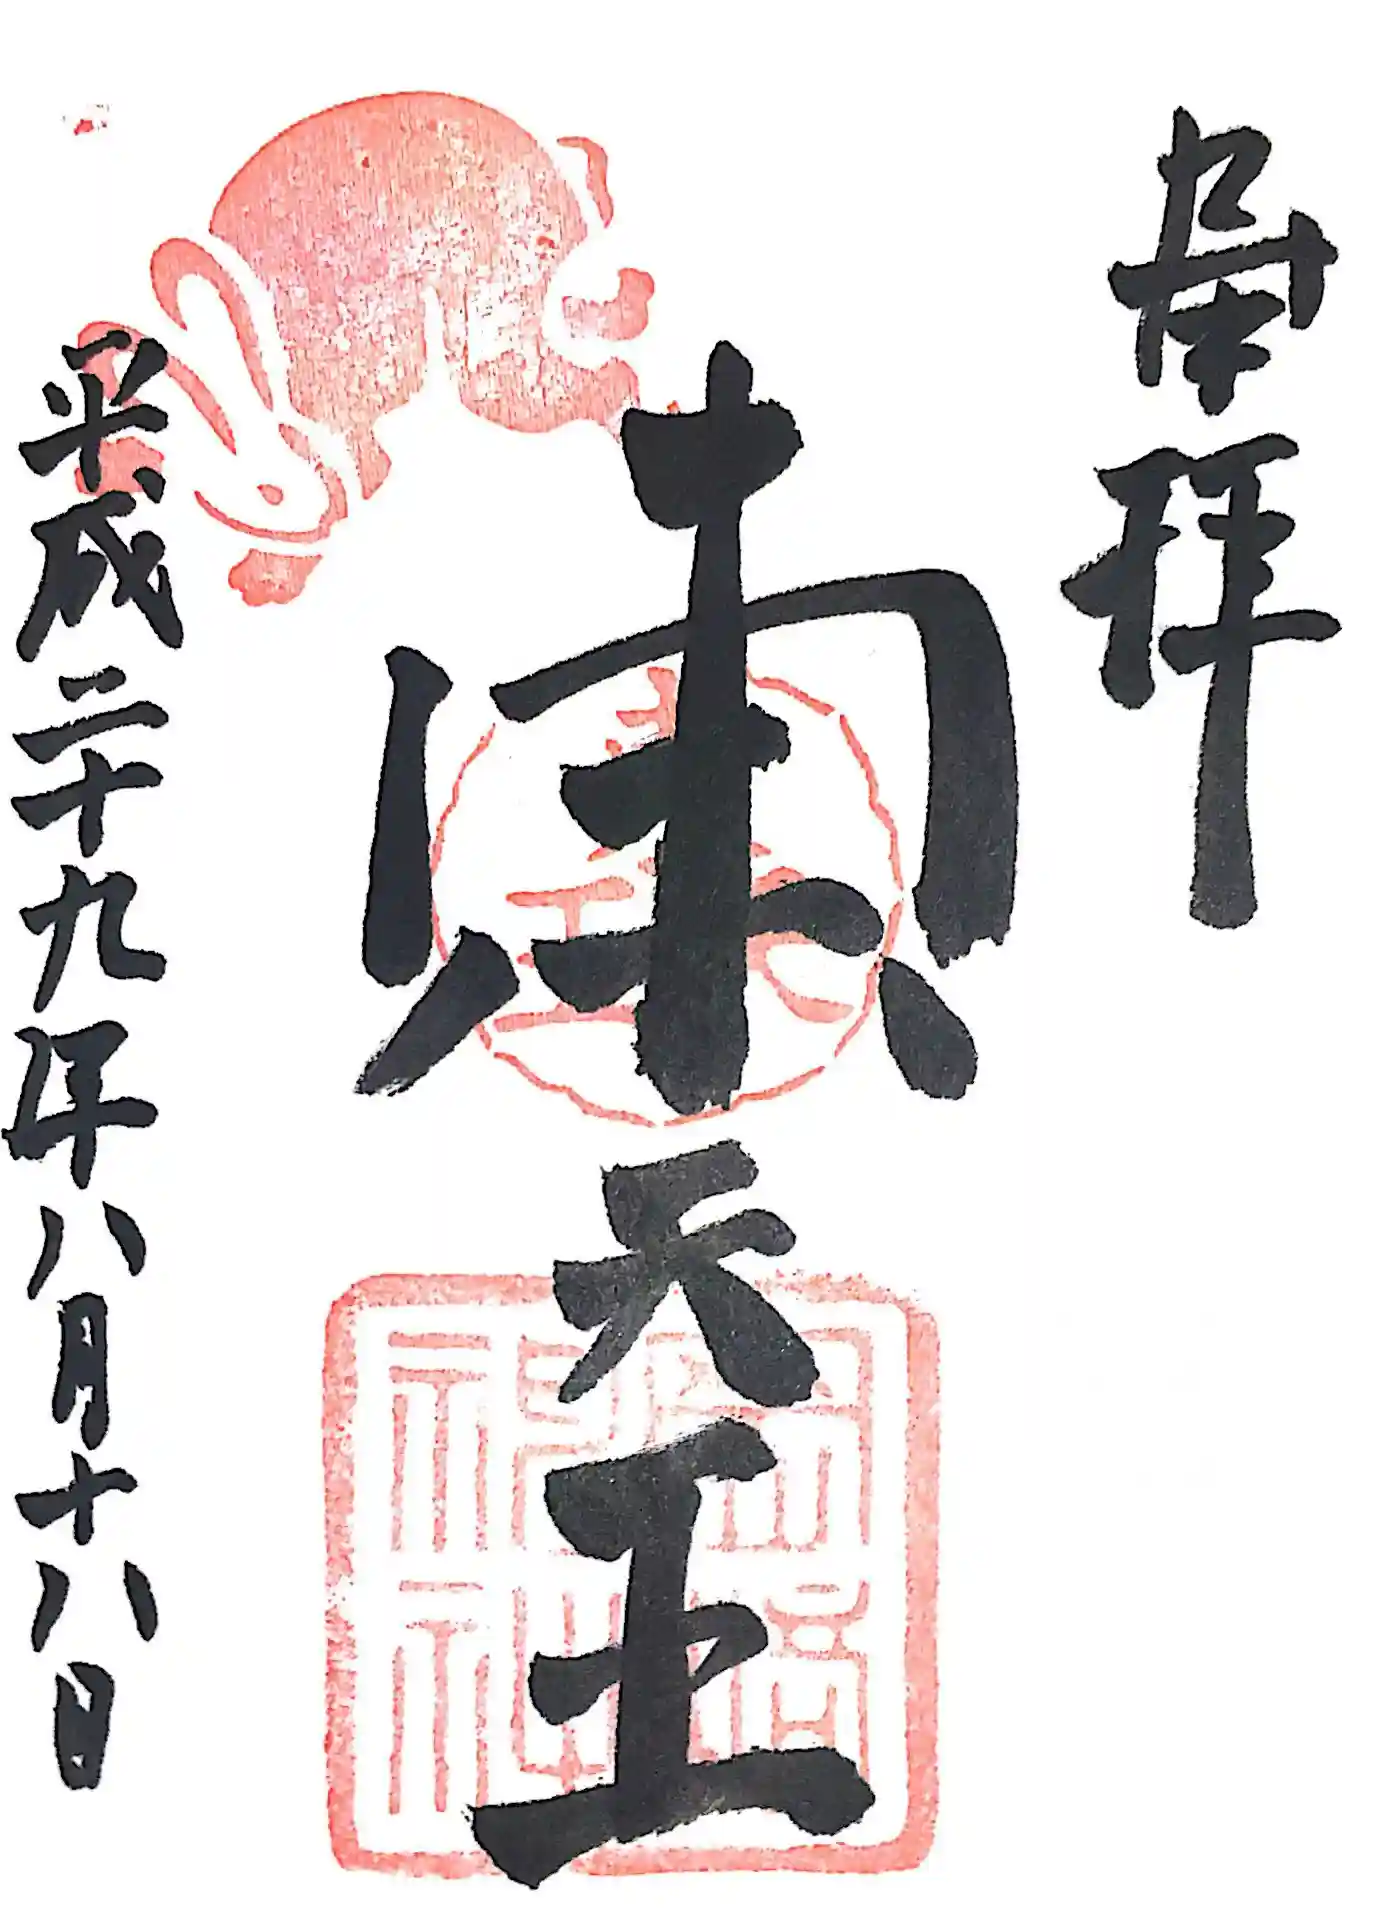 奉拝
東天王
平成二十九年八月十八日
岡崎神社